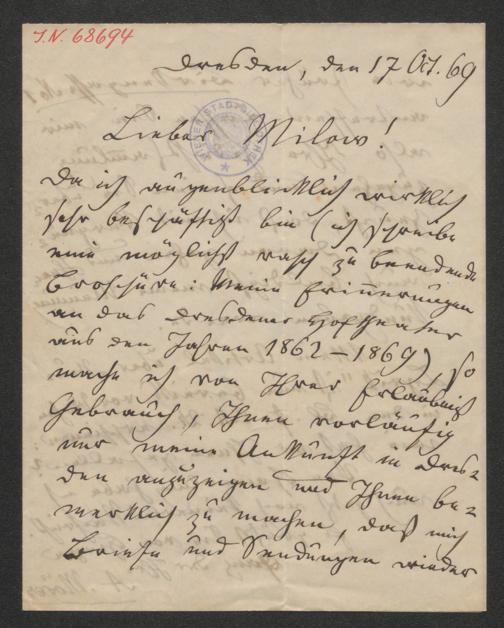 I.N. 68694
Dresden, den 17 Oct. 69
WIENER STADTBIBLIOTHEK
Lieber Milow!
Da ich augenblicklich wirklich
sehr beschäftigt bin (ich schreibe
eine möglichst rasch zu beendende
Broschüre: Meine Erinnerungen
an das Dresdener Hoftheater
aus den Jahren 1862–1869), so
mache ich von Ihrer Erlaubniß
Gebrauch, Ihnen vorläufig
nur meine Ankunft in Dres-
den anzuzeigen und Ihnen be-
merklich zu machen, daß mich
Briefe und Sendungen wieder